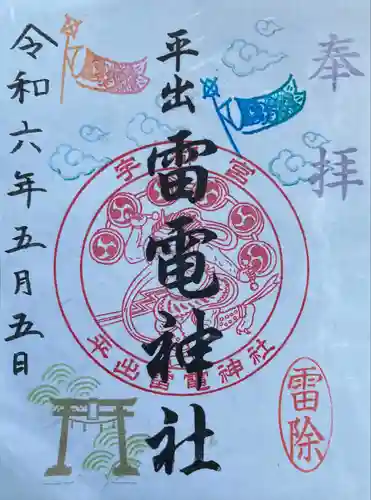 奉拝
平出雷電神社
令和六年五月五日
宇都宮
平出雷電神社
雷除